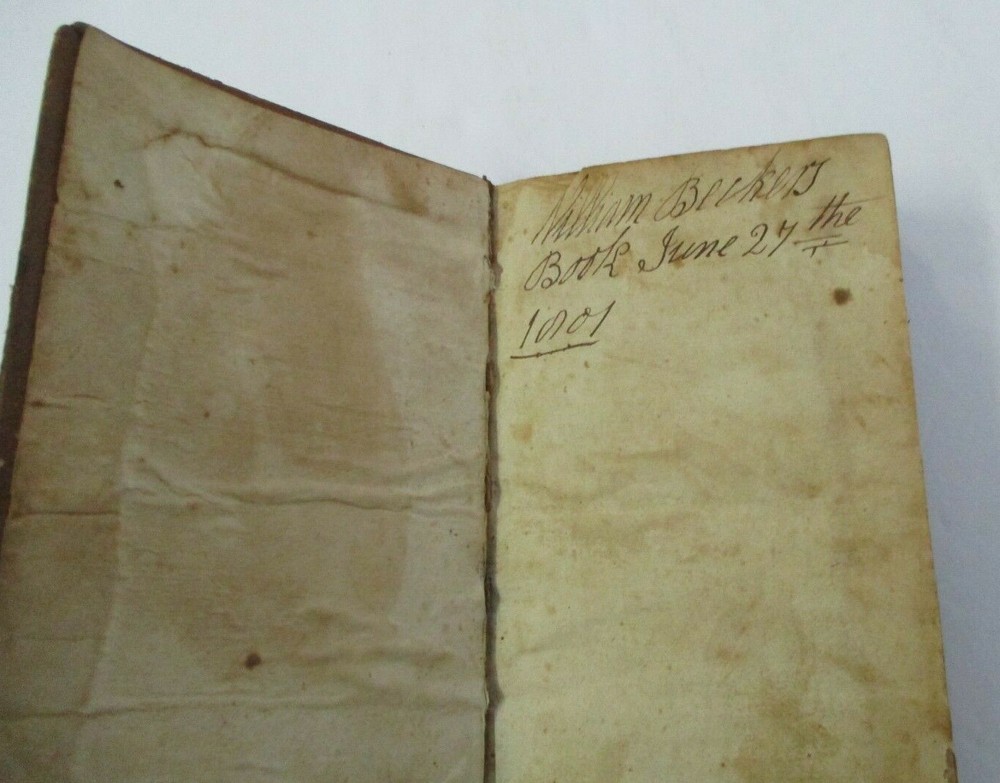 William Beckers
Book June 27 the
1801